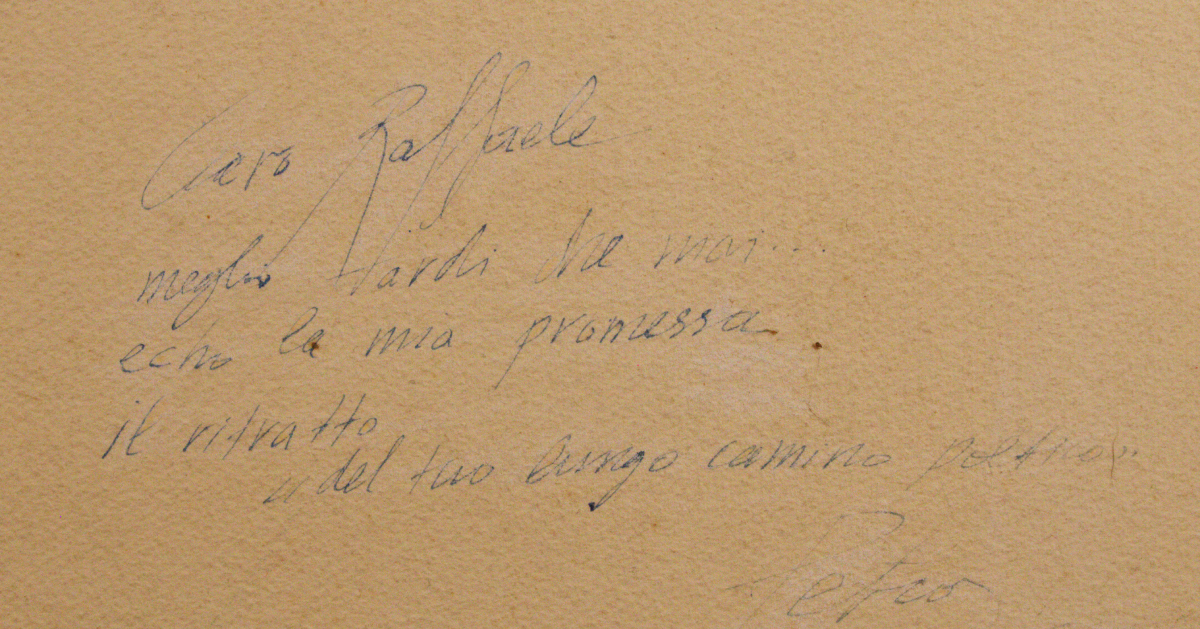 Caro Raffaele
meglio tardi che mai...
echo la mia promessa
il ritratto
del tuo lungo camino